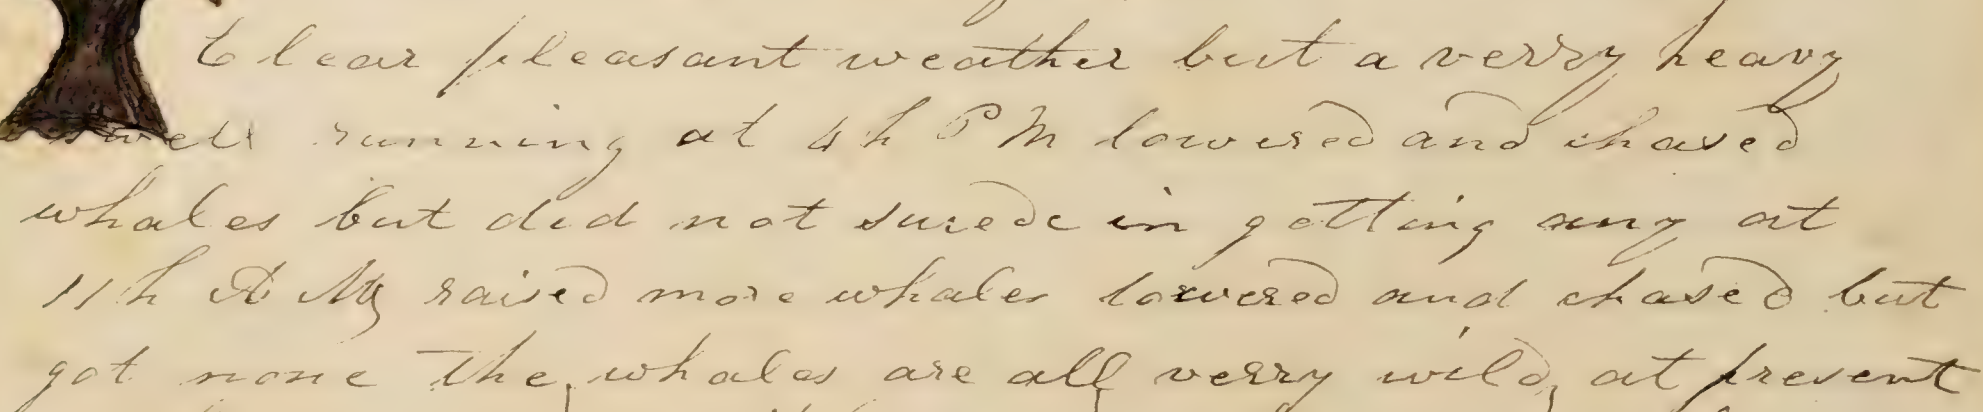 Clear pleasant weather but a verry heavy
swell running at 4 h P M lowered and chased
whales but did not sucede in getting any at
11 h A M raised more whales lowered and chased but
got none the whales are all verry wild at present